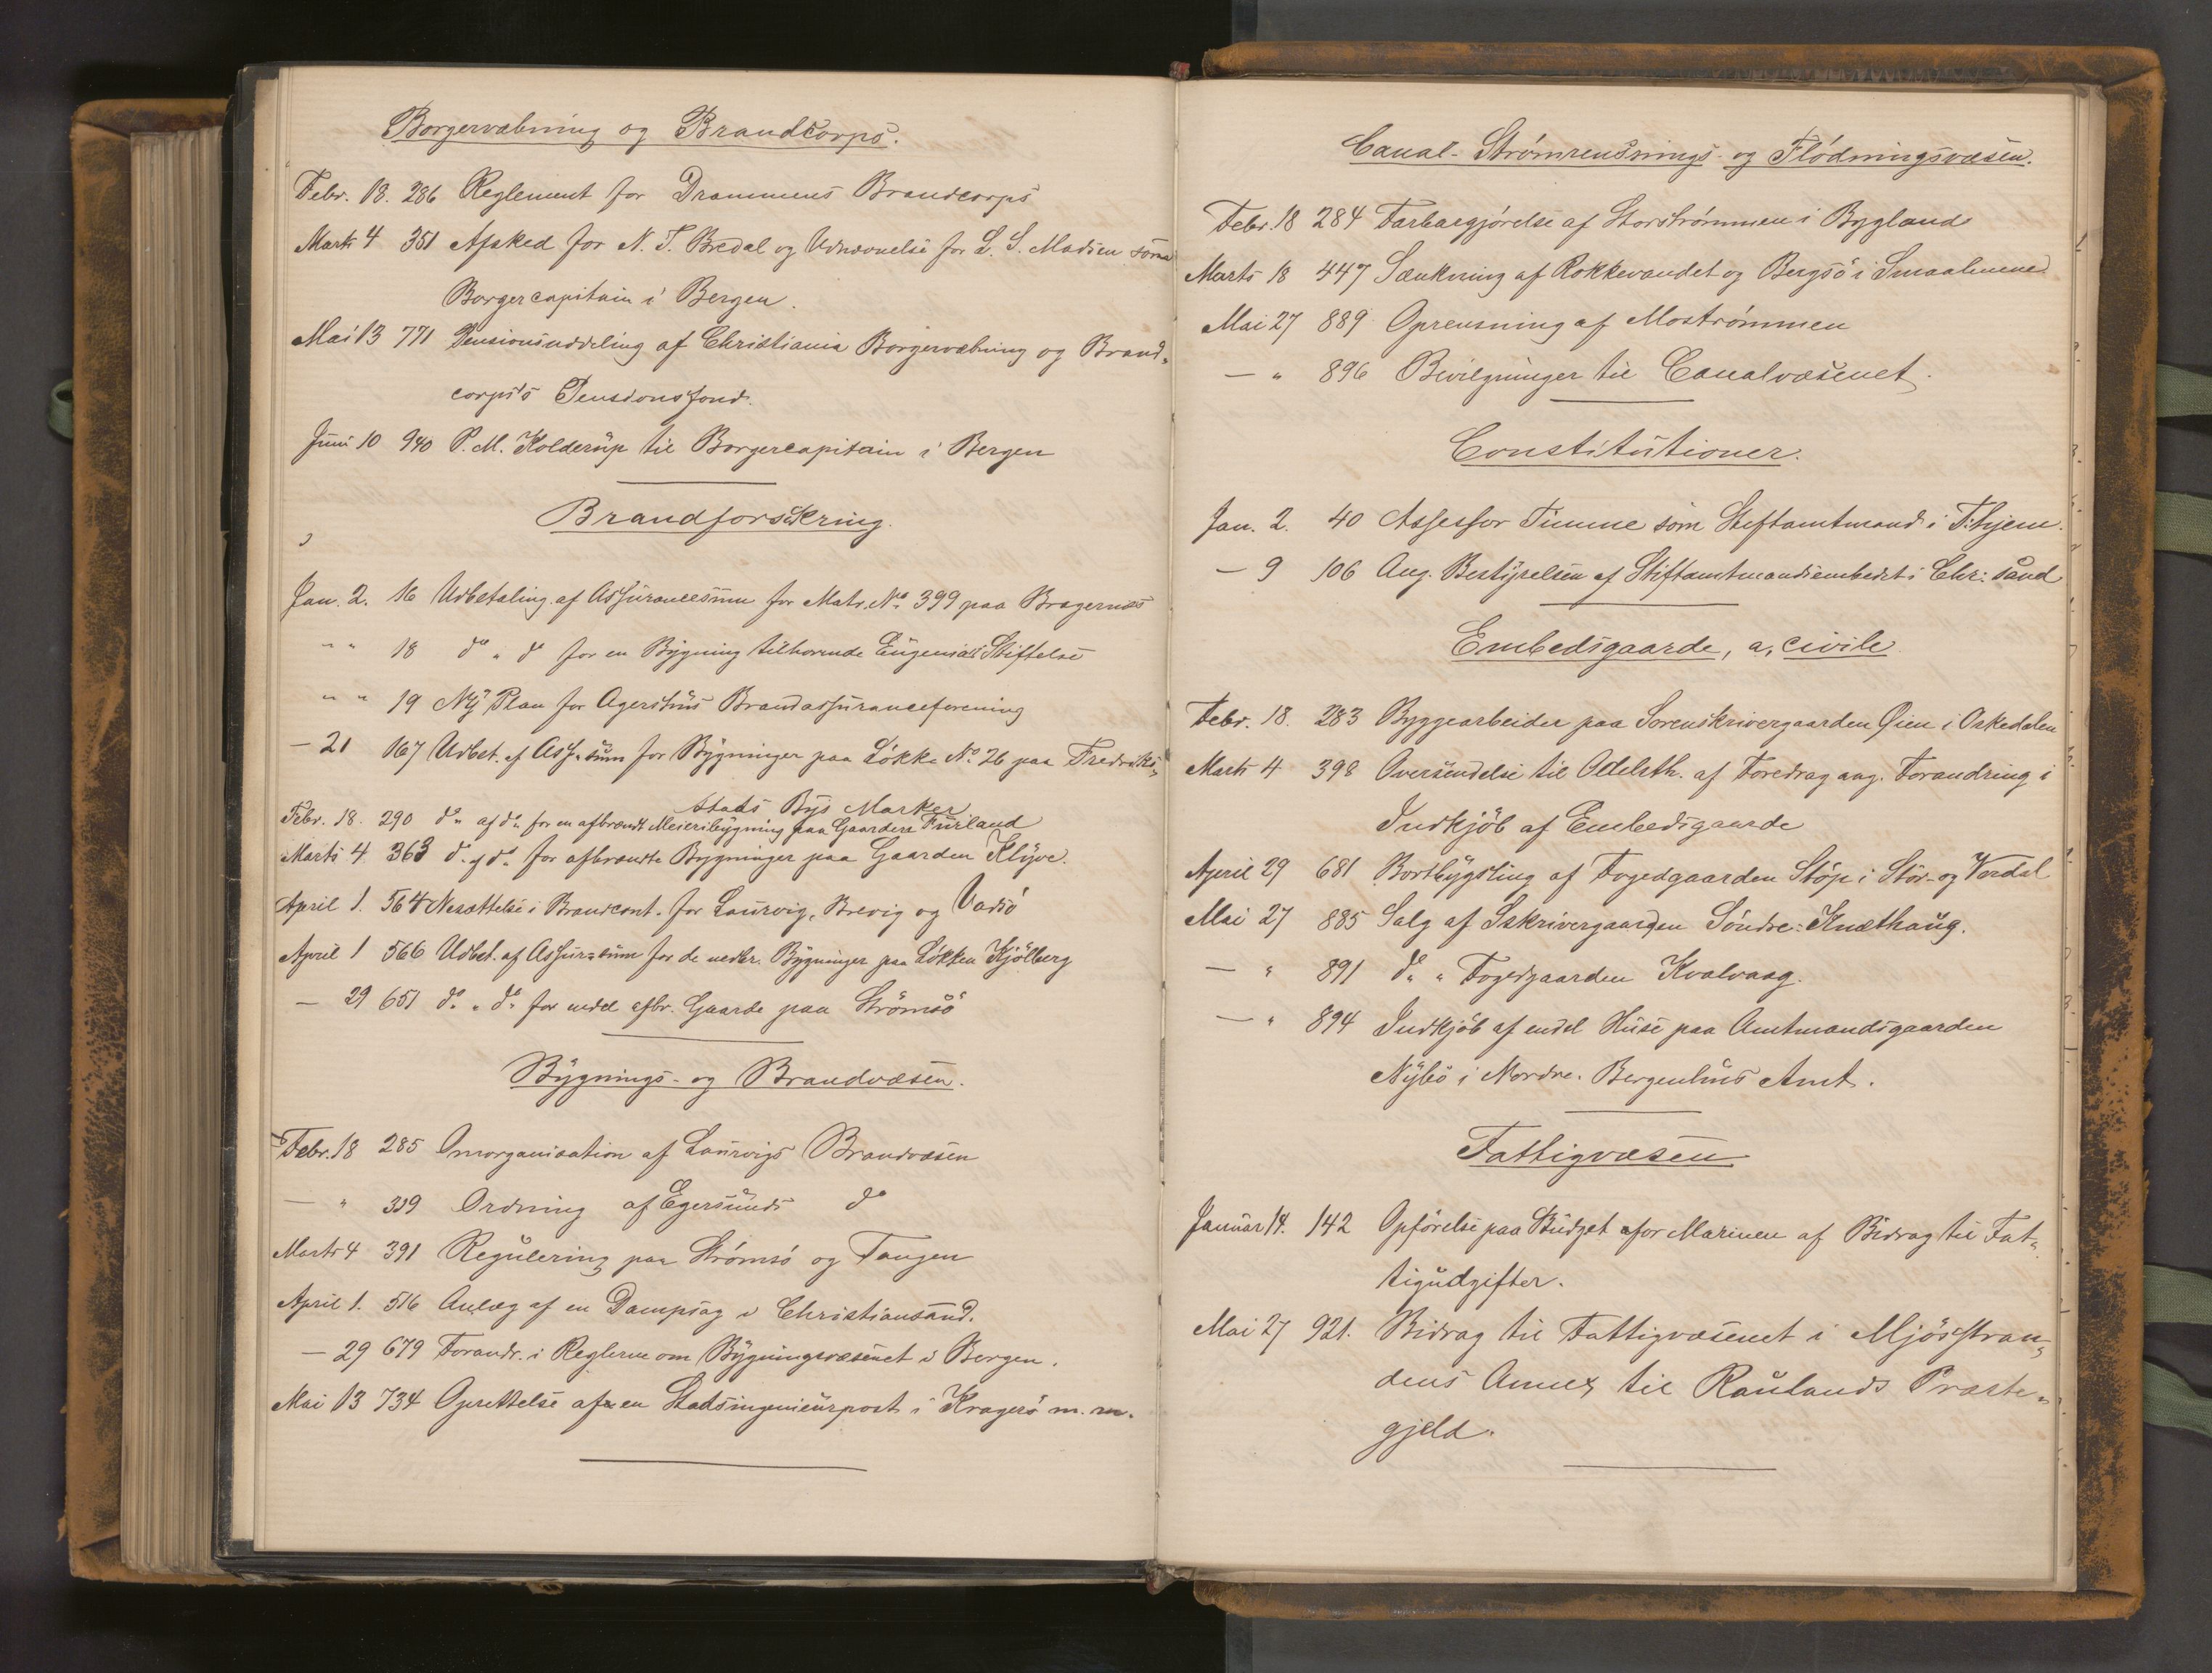 Borgervæbning og Brandcorps.
Febr. 18. 286 Reglement for Drammens Brandcorps
Marts 4 351 Afsked for N. T. Bredal og Udnævnelse for L. S. Madsen som
Borgercapitain i Bergen.
Mai 13 771 Pensionsuddeling af Christiania Borgervæbning og Brand„
corps's Pensionsfond.
Juni 10 940 P. M. Kolderup til Borgercapitain i Bergen
Brandforsikring.
Jan. 2. 16 Udbetaling af Assurancesum for Matr. No 399 paa Bragernæs
" " 18 do " do for en Bygning tilhørende Eugenias Stiftelse
" " 19 Ny Plan for Agershus Brandassuranceforening
— 21 167 Udbet. af Ass.sum for Bygninger paa Løkke No. 26 paa Fredriks„
stads Bys Marker
Febr. 18. 290 do af do for en afbrændt Meieribygning paa Gaardene Furland
Marts 4 363 do af do for afbrændte Bygninger paa Gaarden Klyve.
April 1. 564 Nesættelse i Brandcont. for Laurvig, Brevig og Vadsö
April 1 566 Udbet. af Assur=sum for de nedbr. Bygninger paa Løkken Kjölberg
— 29 651 do " do for endel afbr. Gaarde paa Strömsö
Bygnings- og Brandvæsen.
Febr. 18 285 Omorganisation af Laurvigs Brandvæsen
— " 339 Ordning af Egersunds do
Marts 4 391 Regulering paa Strømsö og Tangen
April 1. 516 Anlæg af en Dampsag i Christiansand.
— 29 679 Forandr. i Reglerne om Bygningsvæsenet i Bergen.
Mai 13 734 Oprettelse af en Stadsingenieurpost i Kragerö m. m.
Canal- Strømrensnings- og Flödningsvæsen.
Febr. 18 284 Farbargjørelse af Storstrømmen i Bygland
Marts 18 447 Sænkning af Rokkevandet og Bergsö i Smaalenene
Mai 27 889 Oprensning af Mostrømmen
— " 896 Bevilgninger til Canalvæsenet.
Constitutioner.
Jan. 2. 40 Assessor Timme som Stiftamtmand i T:hjem.
— 9 106 Ang. Bestyrelsen af Stiftamtmandsembedet i Chr: sand
Embedsgaarde, a, civile
Febr. 18. 283 Byggearbeider paa Sorenskrivergaarden Øien i Orkedalen
Marts 4 398 Oversendelse til Odelsth. af Foredrag ang. Forandring i
Indkjöb af Embedsgaarde
April 29 681 Bortbygsling af Fogedgaarden Stöp i Stör- og Verdal
Mai 27 885 Salg af Sskrivergaarden Söndre=Knæthaug.
— " 891 do " Fogedgaarden Kvalvaag.
— " 894 Indkjöb af endel Huse paa Amtmandsgaarden
Nybö i Nordre. Bergenhus Amt.
Fattigvæsen
Januar 14. 142 Opförelse paa Budget for Marinen af Bidrag til Fat„
tigudgifter.
Mai 27 921. Bidrag til Fattigvæsenet i Mjösstran„
dens Annex til Raulands Præste„
gjeld.